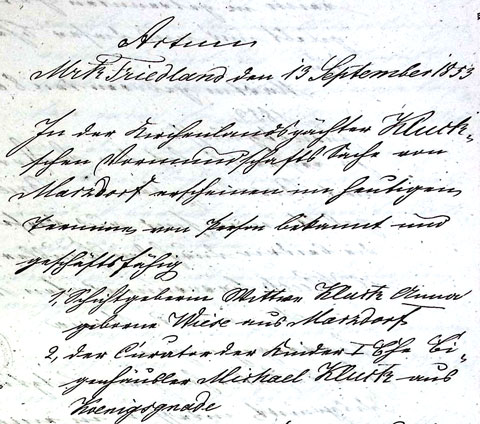 Actum
Mrk Friedland den 13 September 1853
In der Kirchenlandspächter Kluck-
schen Vormundschafts Sache von
Marzdorf erscheinen im heutigen
Termine, von Person bekannt und
geschäftsfähig
1, Schichtgeberin Wittwe Kluck Anna
geborne Wiese aus Marzdorf
2, der Curator der Kinder I Ehe Ei-
genhäusler Michael Kluck aus
Koenigsgnade